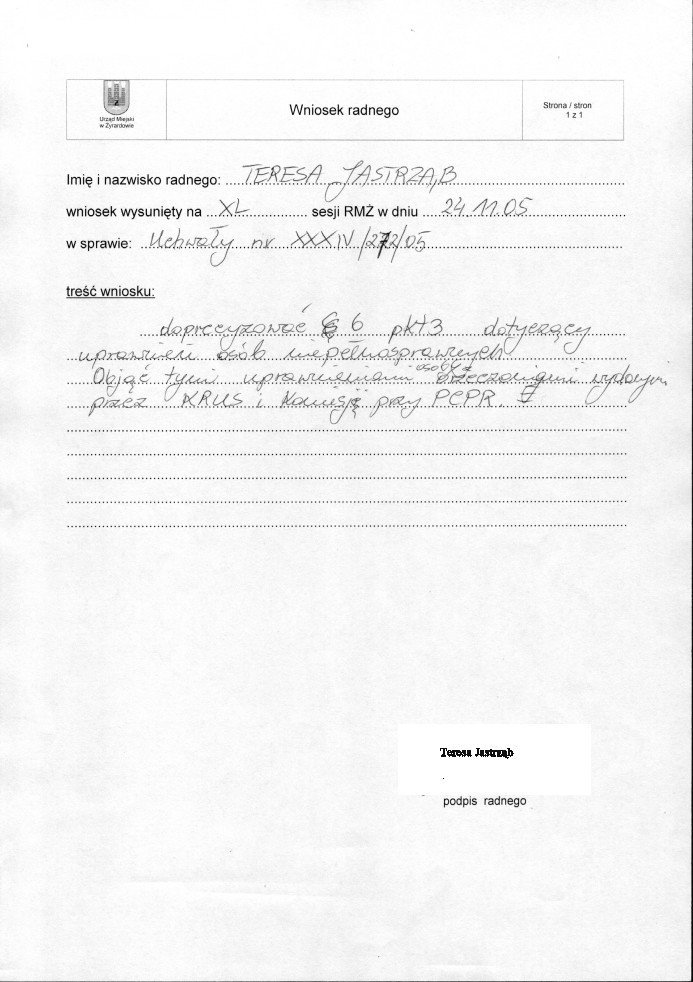 Urząd Miejski
w Żyrardowie
Wniosek radnego
Strona / stron
1 z 1
Imię i nazwisko radnego: TERESA JASTRZĄB
wniosek wysunięty na XL sesji RMŻ w dniu 24 11.05
w sprawie: Uchwały nr XXXIV/272/05
treść wniosku:
doprecyzować § 6 pkt 3 dotyczący
uprawnień osób niepełnosprawnych
Objąć tymi uprawnieniami osoby z orzeczeniami wydanymi
przez KRUS i Komisję przy PCPR.
Teresa Jastrząb
podpis radnego